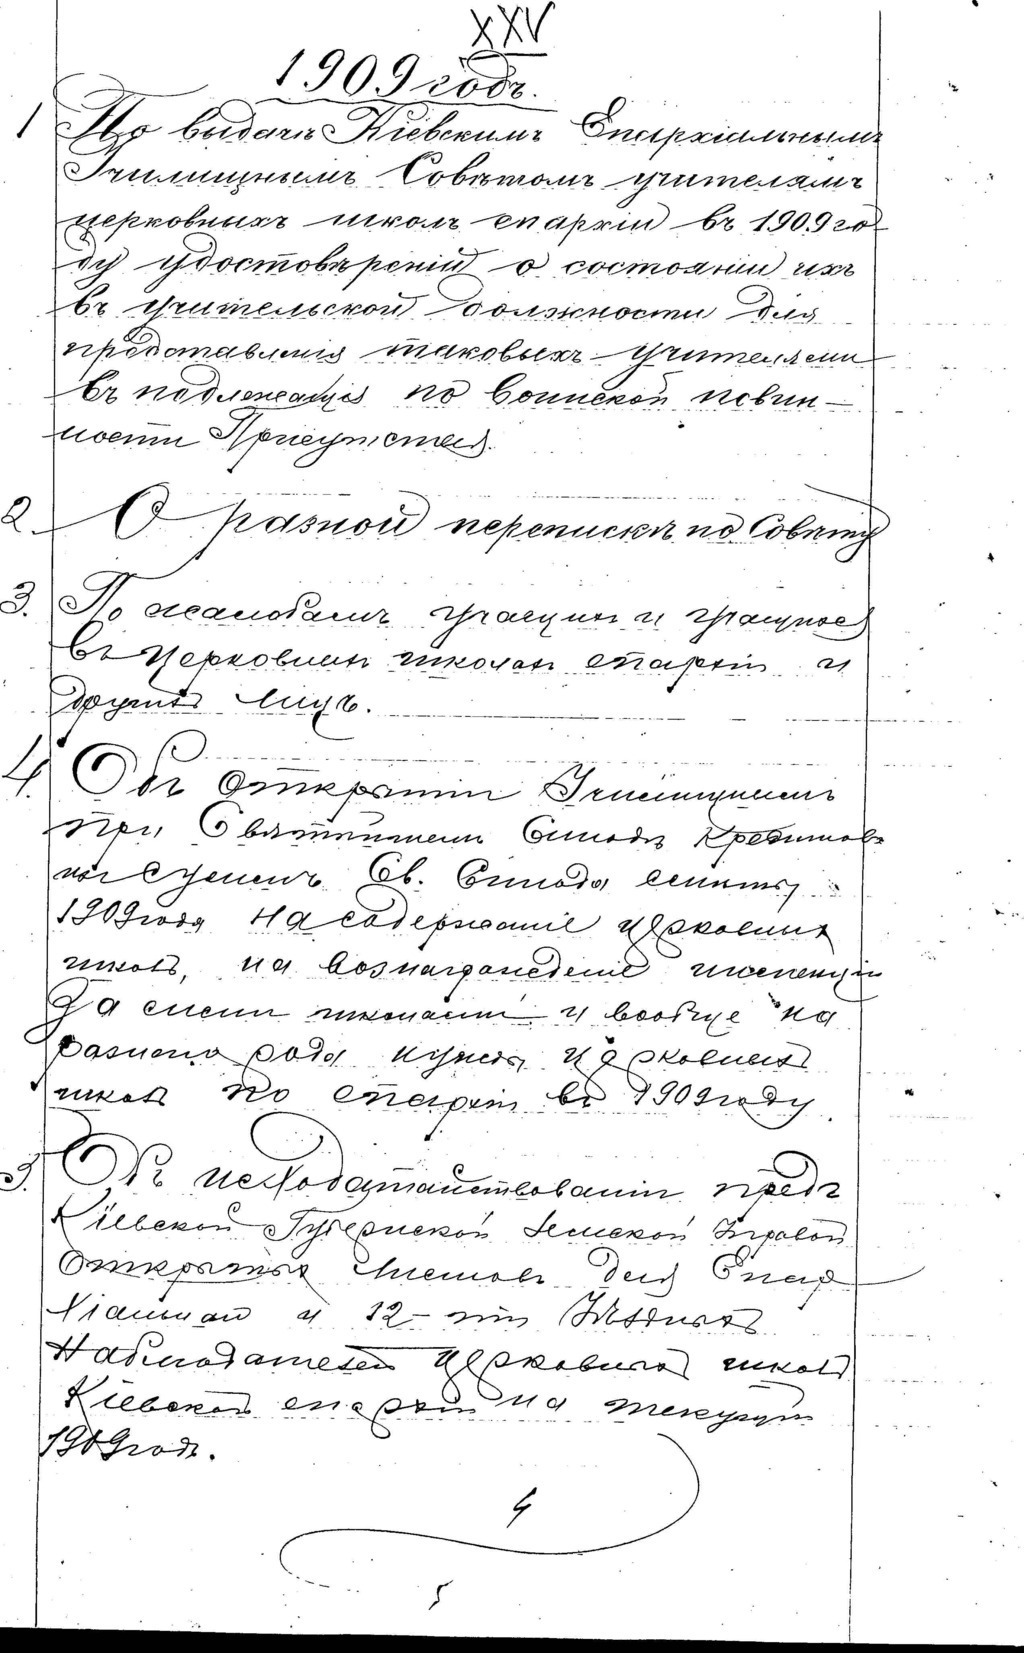 XXV
1909 годъ.
1 По выдачѣ Кіевскимъ Епархіальнымъ
Училищнымъ Совѣтомъ учителямъ
церковныхъ школъ епархіи въ 1909 го
ду удостовѣреній о состояніи ихъ
въ учительской должности для
представленія таковыхъ учителями
въ подлежащія по воинской повин-
ности Присутствія.
2. О разной перепискѣ по Совѣту
3. По жалобамъ учащихъ и учащихся
въ церковныхъ школахъ епархіи и
другихъ лицъ.
4. Объ открытіи Училищнымъ
при Святѣйшемъ Синодѣ Кредитовъ
Св. Синода смѣты
1909 года на содержаніе церковныхъ
школъ, на вознагражденіе инспекціи
за сими школами и вообще на
разнаго рода нужды церковныхъ
школъ по епархіи въ 1909 году.
5. Объ исходатайствованіи предъ
Кіевской Губернской Земской Управой
Открытыхъ Листовъ для Епар
хіальнаго и 12-ти Уѣздныхъ
Наблюдателей церковныхъ школъ
Кіевской епархіи на текущій
1909 годъ.
4
5